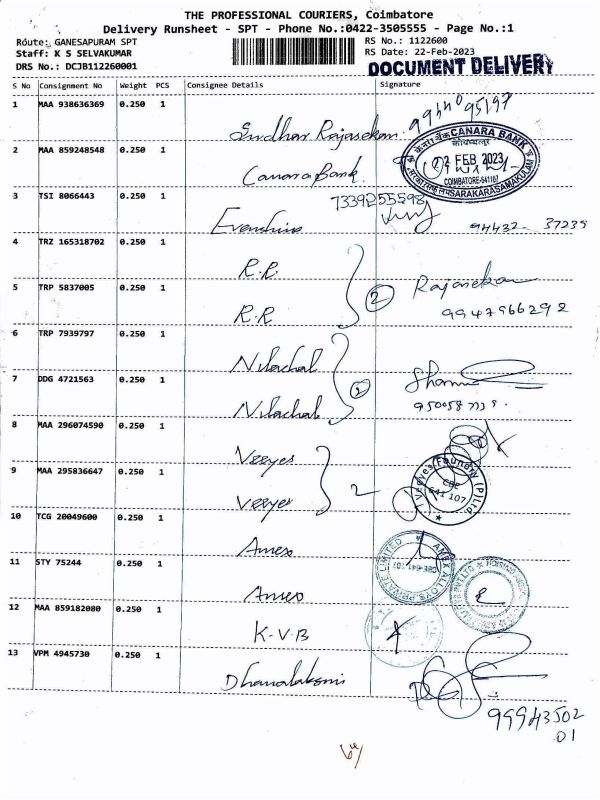 THE PROFESSIONAL COURIERS, Coimbatore
Delivery Runsheet - SPT - Phone No.:0422-3505555 - Page No.:1
Route: GANESAPURAM SPT
RS No.: 1122600
Staff: K S SELVAKUMAR
RS Date: 22-Feb-2023
DRS No.: DCJB112260001
DOCUMENT DELIVERY
S No Consignment No Weight PCS Consignee Details Signature
1 MAA 938636369 0.250 1
Rajasekan
2 MAA 859248548 0.250 1 Canara Bank
CANARA BANK
FEB 2023
COIMBATORE-641107
SARKARASAMAKULAM
3 TSI 8066443 0.250 1
7339255598
94432-37235
4 TRZ 165318702 0.250 1 R.R.
5 TRP 5837005 0.250 1 R.R
2 Rajasekan
9947966292
6 TRP 7939797 0.250 1 Nilachal
7 DDG 4721563 0.250 1 Nilachal
2
8 MAA 296074590 0.250 1 Veeyes
9 MAA 295836647 0.250 1 Veeyes
2
Veeyes Foundry (P) Ltd
CBE
641 107
10 TCG 20049600 0.250 1 Amex
AMEX ALLOYS PRIVATE LIMITED
CBE-641 107
11 STY 75244 0.250 1 Amex
12 MAA 859182080 0.250 1 K-V-B
13 VPM 4945730 0.250 1 Dhanalaksmi
99943502
01